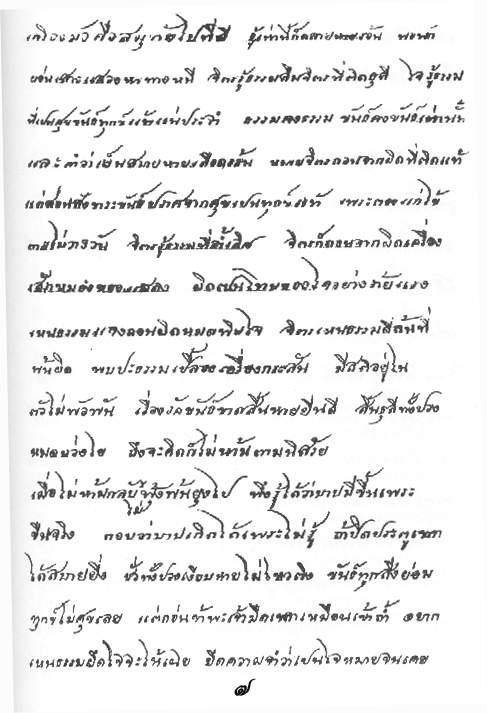 เครื่องมัวคือสมุทัยไปที่ดี รู้เท่านี้ก็คลายหายร้อน พอพัก
ผ่อนเสาะแสวงหาทางหนี จิตรู้ธรรมลืมจิตที่ติดธุลี ใจรู้ธรรม
ที่เป็นสุขขันธ์ทุกข์แท้แน่ประจำ ธรรมคงธรรม ขันธ์คงขันธ์เท่านั้น
และคำว่าเย็นสบายหายเดือดร้อน หมายจิตถอนจากผิดที่ติดแท้
แต่ส่วนสังขารขันธ์ปราศจากสุขเปนทุกข์แท้ เพราะต้องแก่ไข้
ตายไม่วายวัน จิตรู้ธรรมที่ล้ำเลิศ จิตก็ถอนจากผิดเครื่อง
เส้าหมองของแสลง ผิดเป็นโทษของใจอย่างร้ายแรง
เหนธรรมแจ้งถอนผิดหมดพิษใจ จิตรเหนธรรมดีล้นที่
พ้นผิด พบปะธรรมเปลื้องเครื่องกระสัน มีสติอยู่ใน
ตัวไม่พัวพัน เรื่องรักขันธ์ขาดสิ้นหายยินดี สิ้นธุลีทั้งปวง
หมดห่วงใย ถึงจะคิดก็ไม่ห้ามตามนิสัย
เมื่อไม่ห้ามกลับไม่ฟุ้งพ้นยุ่งไป พึงรู้ได้ว่าบาปมีขึ้นเพราะ
ขืนจริง ตอบว่าบาปเกิดได้เพราะไม่รู้ ถ้าปิดประตูเขลา
ได้สบายยิ่ง ชั่วทั้งปวงเงียบหายไม่ไหวติง ขันธ์ทุกสิ่งย่อม
ทุกข์ไม่สุขเลย แต่ก่อนข้าพะเจ้ามืดเขลาเหมือนเข้าถ้ำ อยาก
เหนธรรมยึดใจจะให้เฉย ยึดความจำว่าเปนใจหมายจนเคย
๗